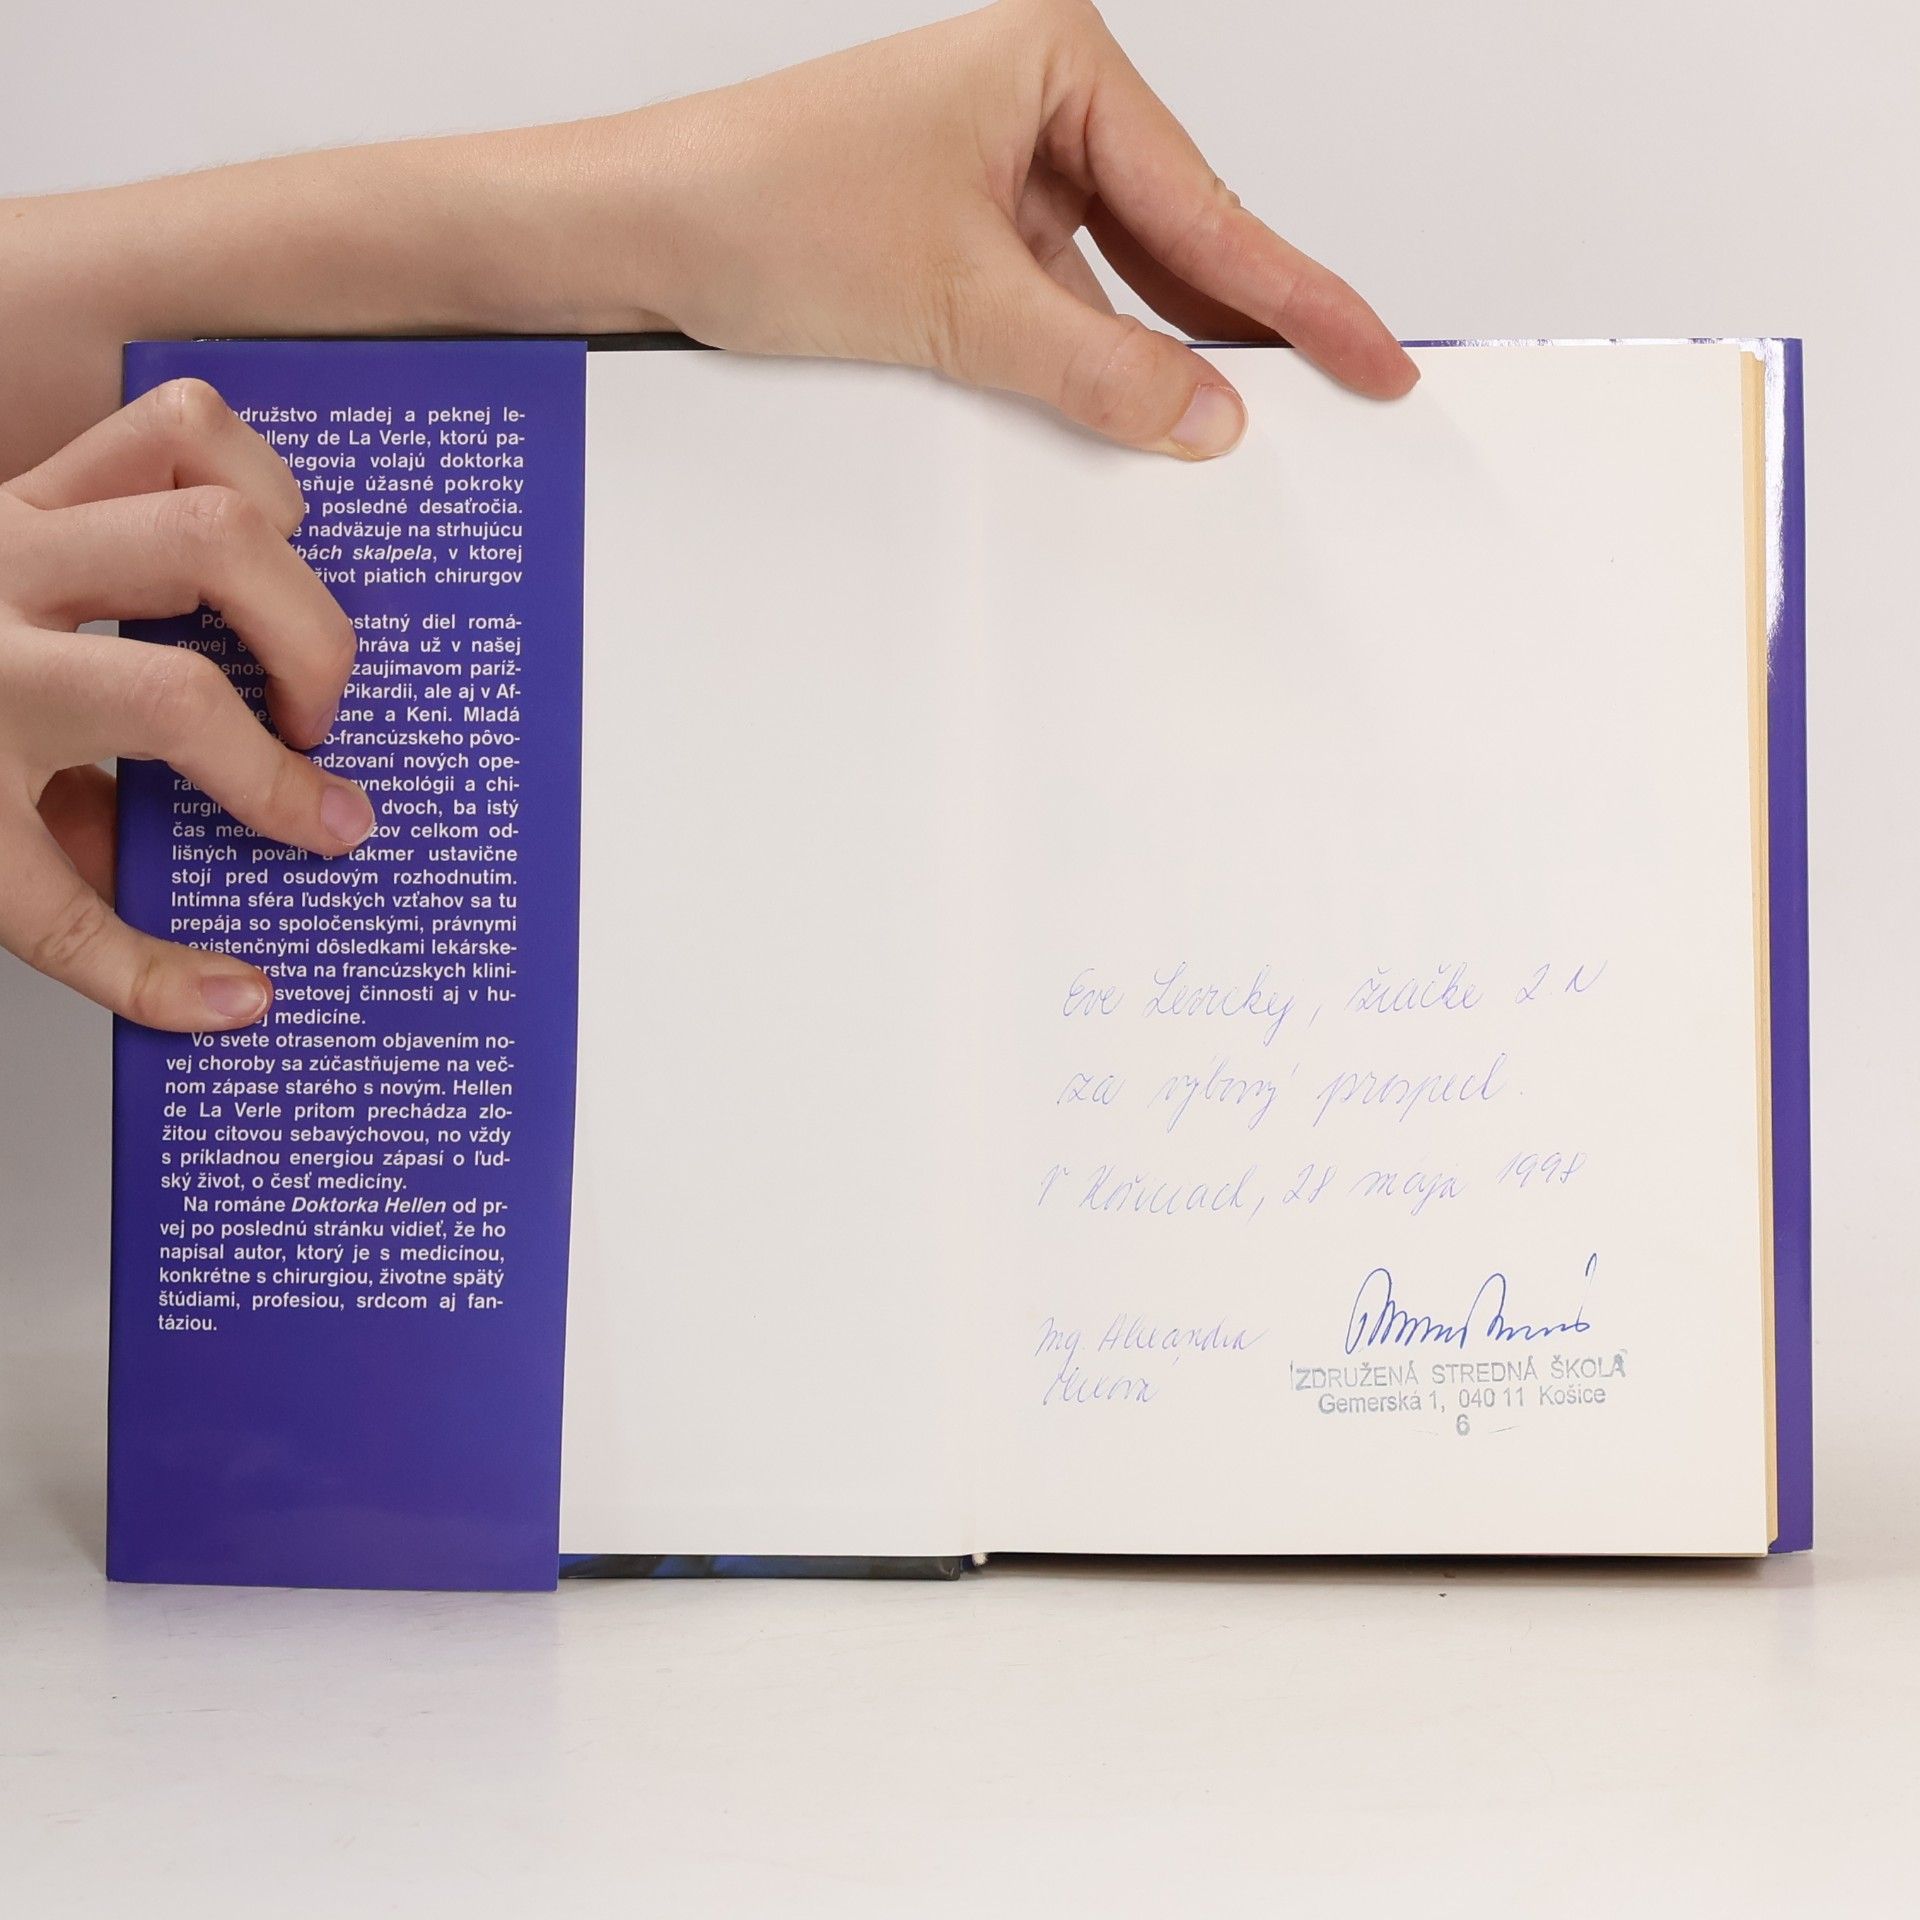 družstvo mladej a peknej le-
lleny de La Verle, ktorú pa-
olegovia volajú doktorka
sňuje úžasné pokroky
a posledné desaťročia.
e nadväzuje na strhujúcu
bách skalpela, v ktorej
život piatich chirurgov
Po statný diel romá-
novej s hráva už v našej
snos zaujímavom paríž-
pro Pikardii, ale aj v Af-
ne, tane a Keni. Mladá
o-francúzskeho pôvo-
adzovaní nových ope-
ra gynekológii a chi-
rurgi dvoch, ba istý
čas med žov celkom od-
lišných pováh a takmer ustavične
stojí pred osudovým rozhodnutím.
Intímna sféra ľudských vzťahov sa tu
prepája so spoločenskými, právnymi
a existenčnými dôsledkami lekárske-
rstva na francúzskych klini-
svetovej činnosti aj v hu-
j medicíne.
Vo svete otrasenom objavením no-
vej choroby sa zúčastňujeme na več-
nom zápase starého s novým. Hellen
de La Verle pritom prechádza zlo-
žitou citovou sebavýchovou, no vždy
s príkladnou energiou zápasí o ľud-
ský život, o česť medicíny.
Na románe Doktorka Hellen od pr-
vej po poslednú stránku vidieť, že ho
napísal autor, ktorý je s medicínou,
konkrétne s chirurgiou, životne spätý
štúdiami, profesiou, srdcom aj fan-
táziou.
Eve Levickej, žiačke 2. N
za výborný prospech.
V Košiciach, 28 mája 1998
Ing. Alexandra
ZDRUŽENÁ STREDNÁ ŠKOLA
Gemerská 1, 040 11 Košice
6